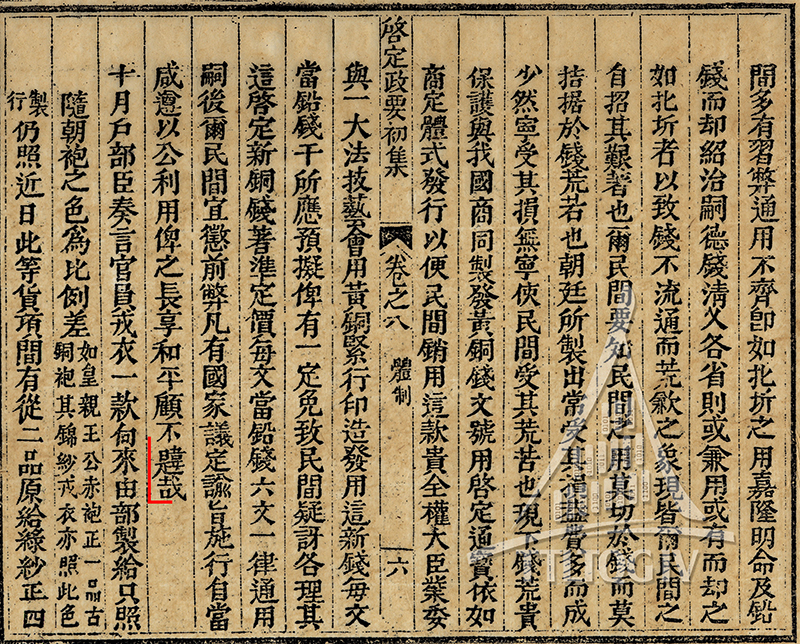 間多有習弊通用不齊即如北圻之用嘉隆明命及鉛
錢而却紹治嗣德錢清乂各省則或兼用或有而却之
如北圻者以致錢不流通而荒歉之象現皆爾民間之
自招其艱著也爾民間要知民間之用莫切於錢而莫
拮据於錢荒若也朝廷所製出常受其損益費多而成
少然寧受其損無寧使民間受其荒苦也現下錢荒貴
保護與我國商同製發黃銅錢文號用啓定通寶依如
商定體式發行以便民間銷用這款貴全權大臣業委
啓定政要初集
卷之八
體制
六
與一大法技藝會用黃銅緊行印造發用這新錢每文
當鉛錢干所應預擬俾有一定免致民間疑訝各理其
這啓定新銅錢著準定價每文當鉛錢六文一律通用
嗣後爾民間宜懲前弊凡有國家議定諭旨施行自當
咸遵以公利用俾之長享和平顧不韙哉
十月戶部臣奏言官員戎衣一款向來由部製給只照
隨朝袍之色爲比例差如皇親王公赤袍正一品古
銅袍其錦紗戎衣亦照此色製
行仍照近日此等貨項間有從二品原給綠紗正四
TTLTQGIV